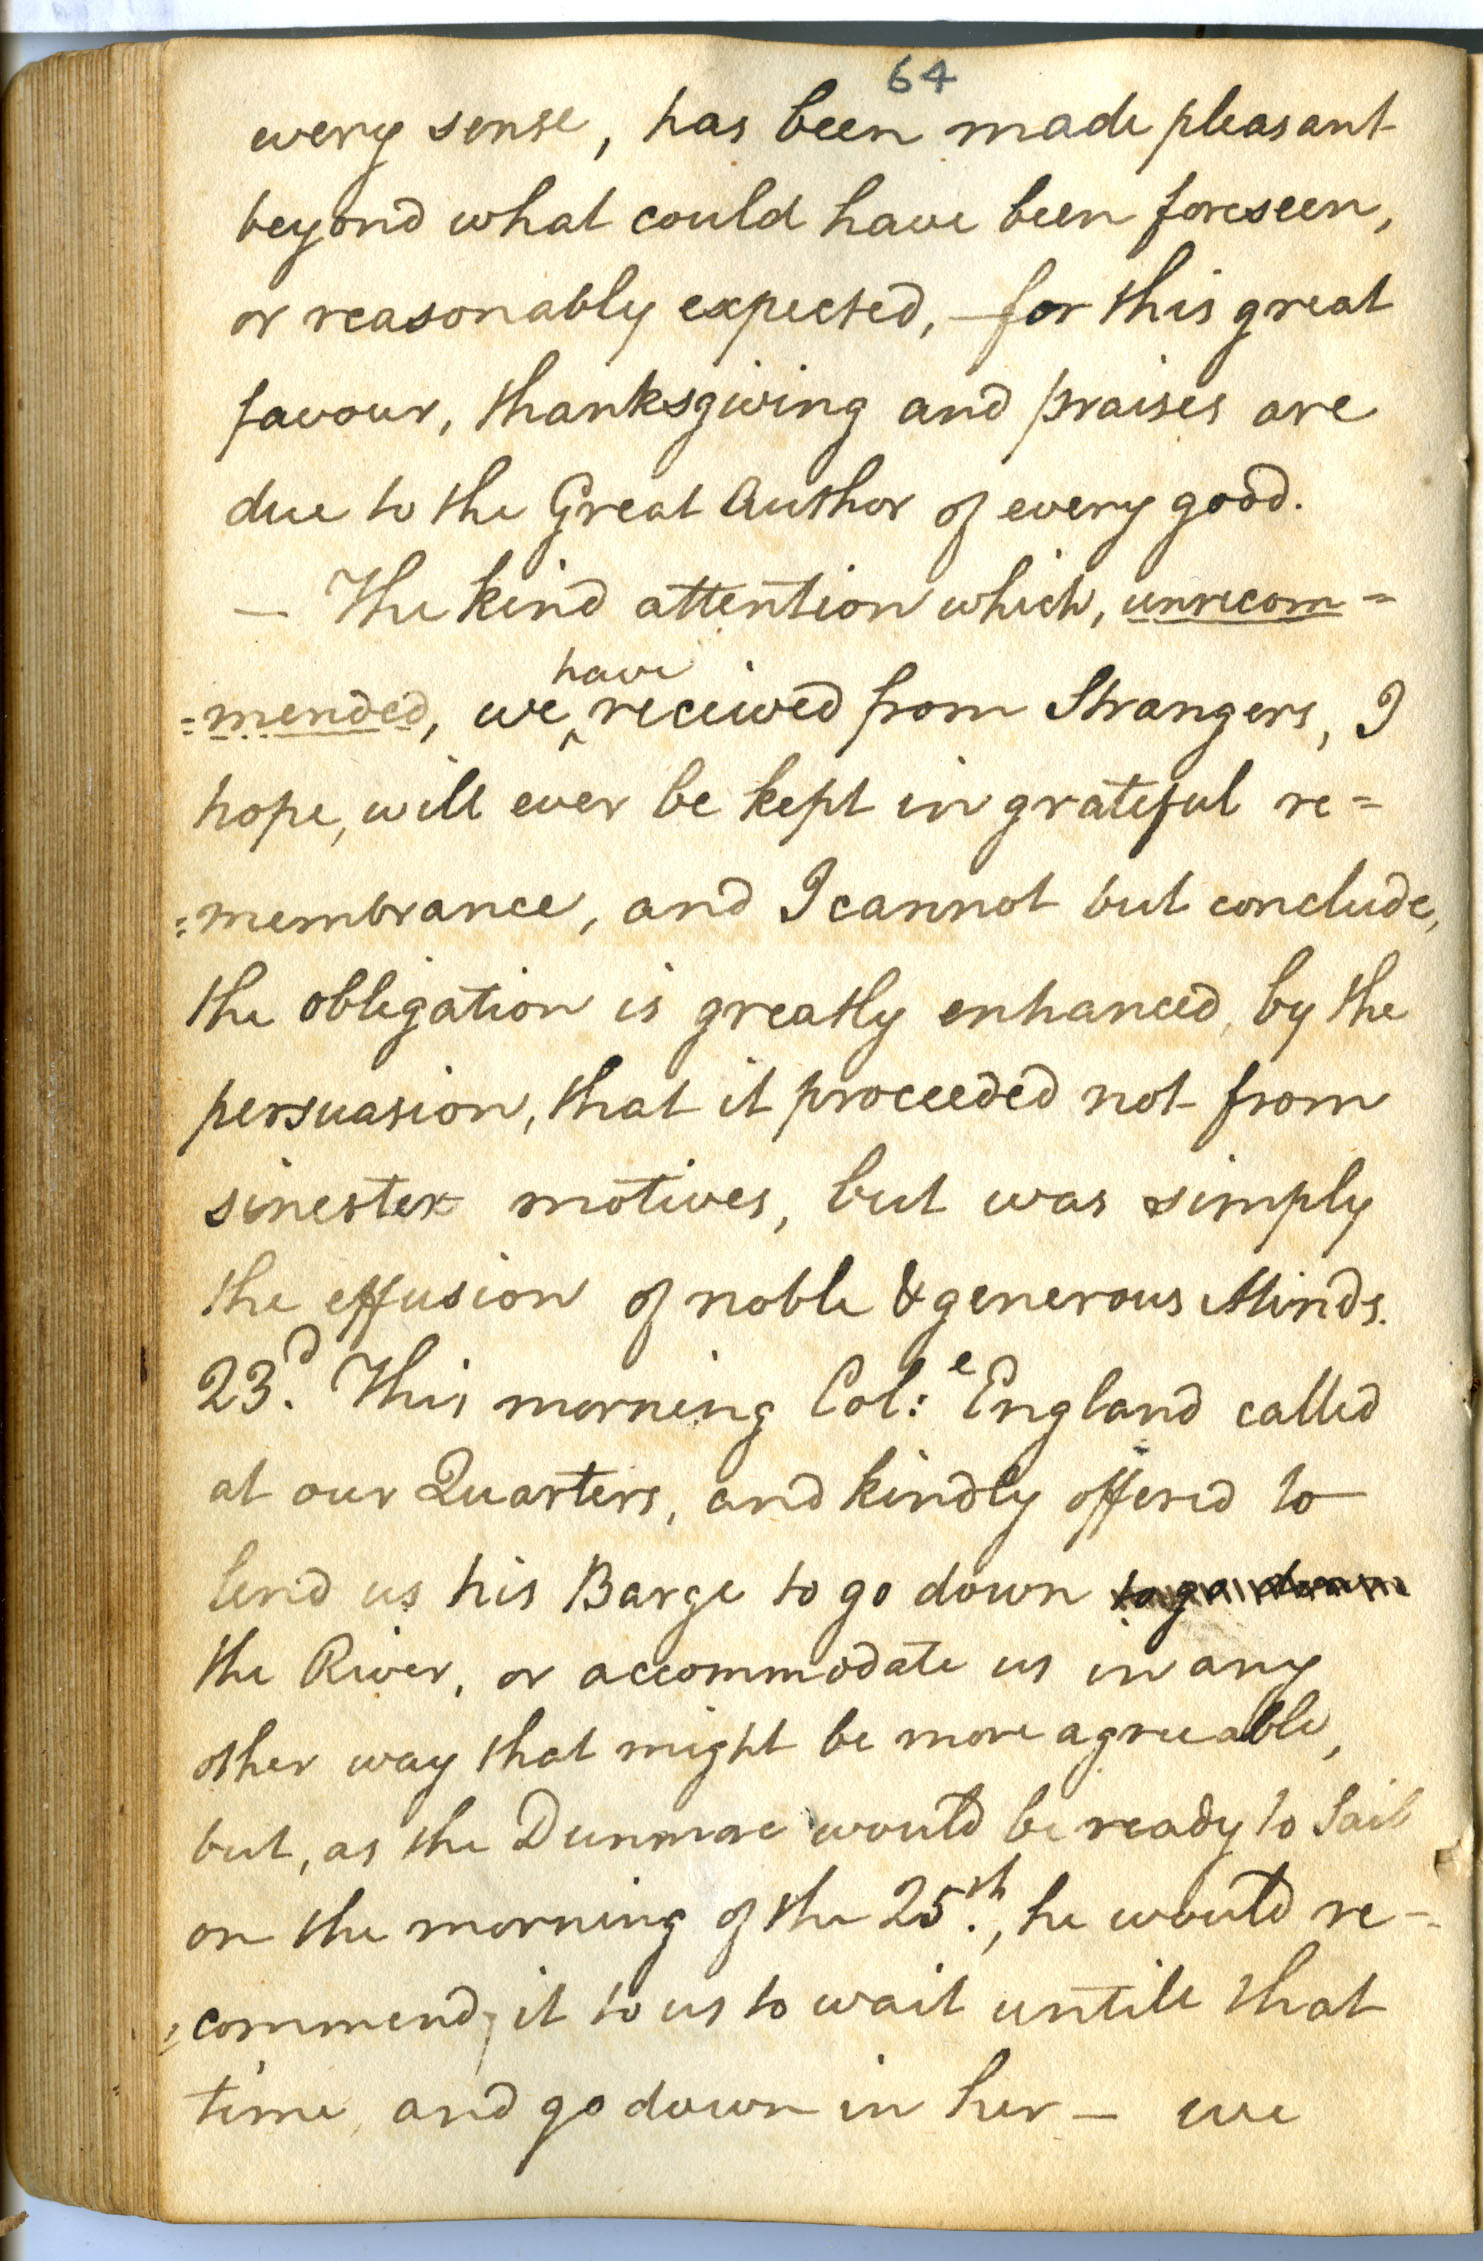 64
every sense, has been made pleasant
beyond what could have been foreseen,
or reasonably expected, — for this great
favour, thanksgiving and praises are
due to the Great Author of every good.
— The kind attention which, unrecom=
=mended, we have received from Strangers, I
hope, will ever be kept in grateful re=
=membrance, and I cannot but conclude,
the obligation is greatly enhanced, by the
persuasion, that it proceeded not from
sinester motives, but was simply
the effusion of noble & generous Minds.
23d. This morning Col:e England called
at our Quarters, and kindly offered to
lend us his Barge to go down to go down
the River, or accommodate us in any
other way that might be more agreeable,
but, as the Dunmore would be ready to Sail
on the morning of the 25th., he would re=
=commend it to us to wait untill that
time, and go down in her — we